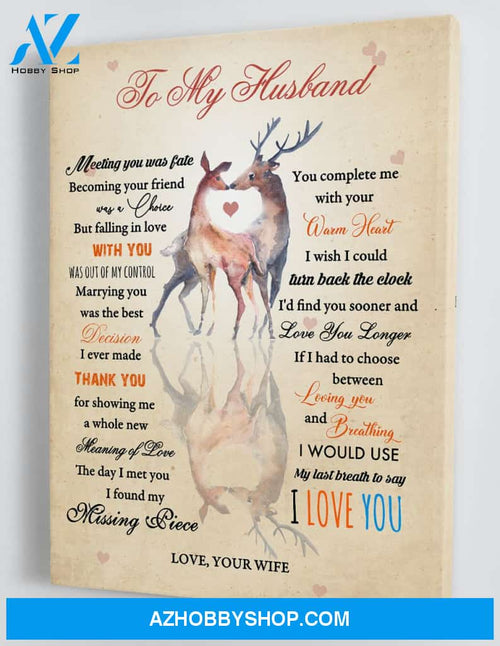 AZ
HOBBY SHOP
To My Husband
Meeting you was fate
Becoming your friend
was a Choice
But falling in love
WITH YOU
WAS OUT OF MY CONTROL
Marrying you
was the best
Decision
I ever made
THANK YOU
for showing me
a whole new
Meaning of Love
The day I met you
I found my
Missing Piece
You complete me
with your
Warm Heart
I wish I could
turn back the clock
I'd find you sooner and
Love You Longer
If I had to choose
between
Loving you
and
Breathing
I WOULD USE
My last breath to say
I LOVE YOU
LOVE, YOUR WIFE
AZHOBBYSHOP.COM